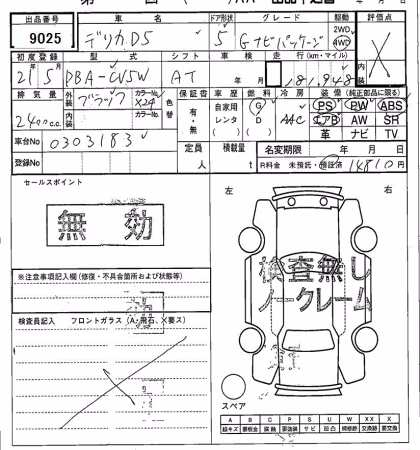 出品番号 車名 ドア形状 グレード 駆動 評価点
9025 デリカD5 5 Gナビパッケージ 2WD 4WD X
初度登録 型式 シフト 車検 走行(km・マイル) 内装
21年5月 DBA-CV5W AT 181,948
排気量 外装色 ブラック カラーNo X24 色替 保証書 車歴 燃料 冷房 装備(純正部品に限る)
2400cc 内装色 カラーNo 有・無 自家用 レンタ G D AAC PS PW ABS
エアB AW SR
革 ナビ TV
車台No 0303183
登録No 定員 人 積載量 t 名変期限 年 月 日
R料金 未預託・預託済 14810円
セールスポイント
無効
左 右
検査無し
ノークレーム
※注意事項記入欄(修復・不具合箇所および状態等)
検査員記入 フロントガラス(A・飛石、X要ス)
スペア
A B C P S U W X XX
線キズ 要板金 腐蝕 要塗装 サビ 凹凸 補修跡 交換跡 要交換